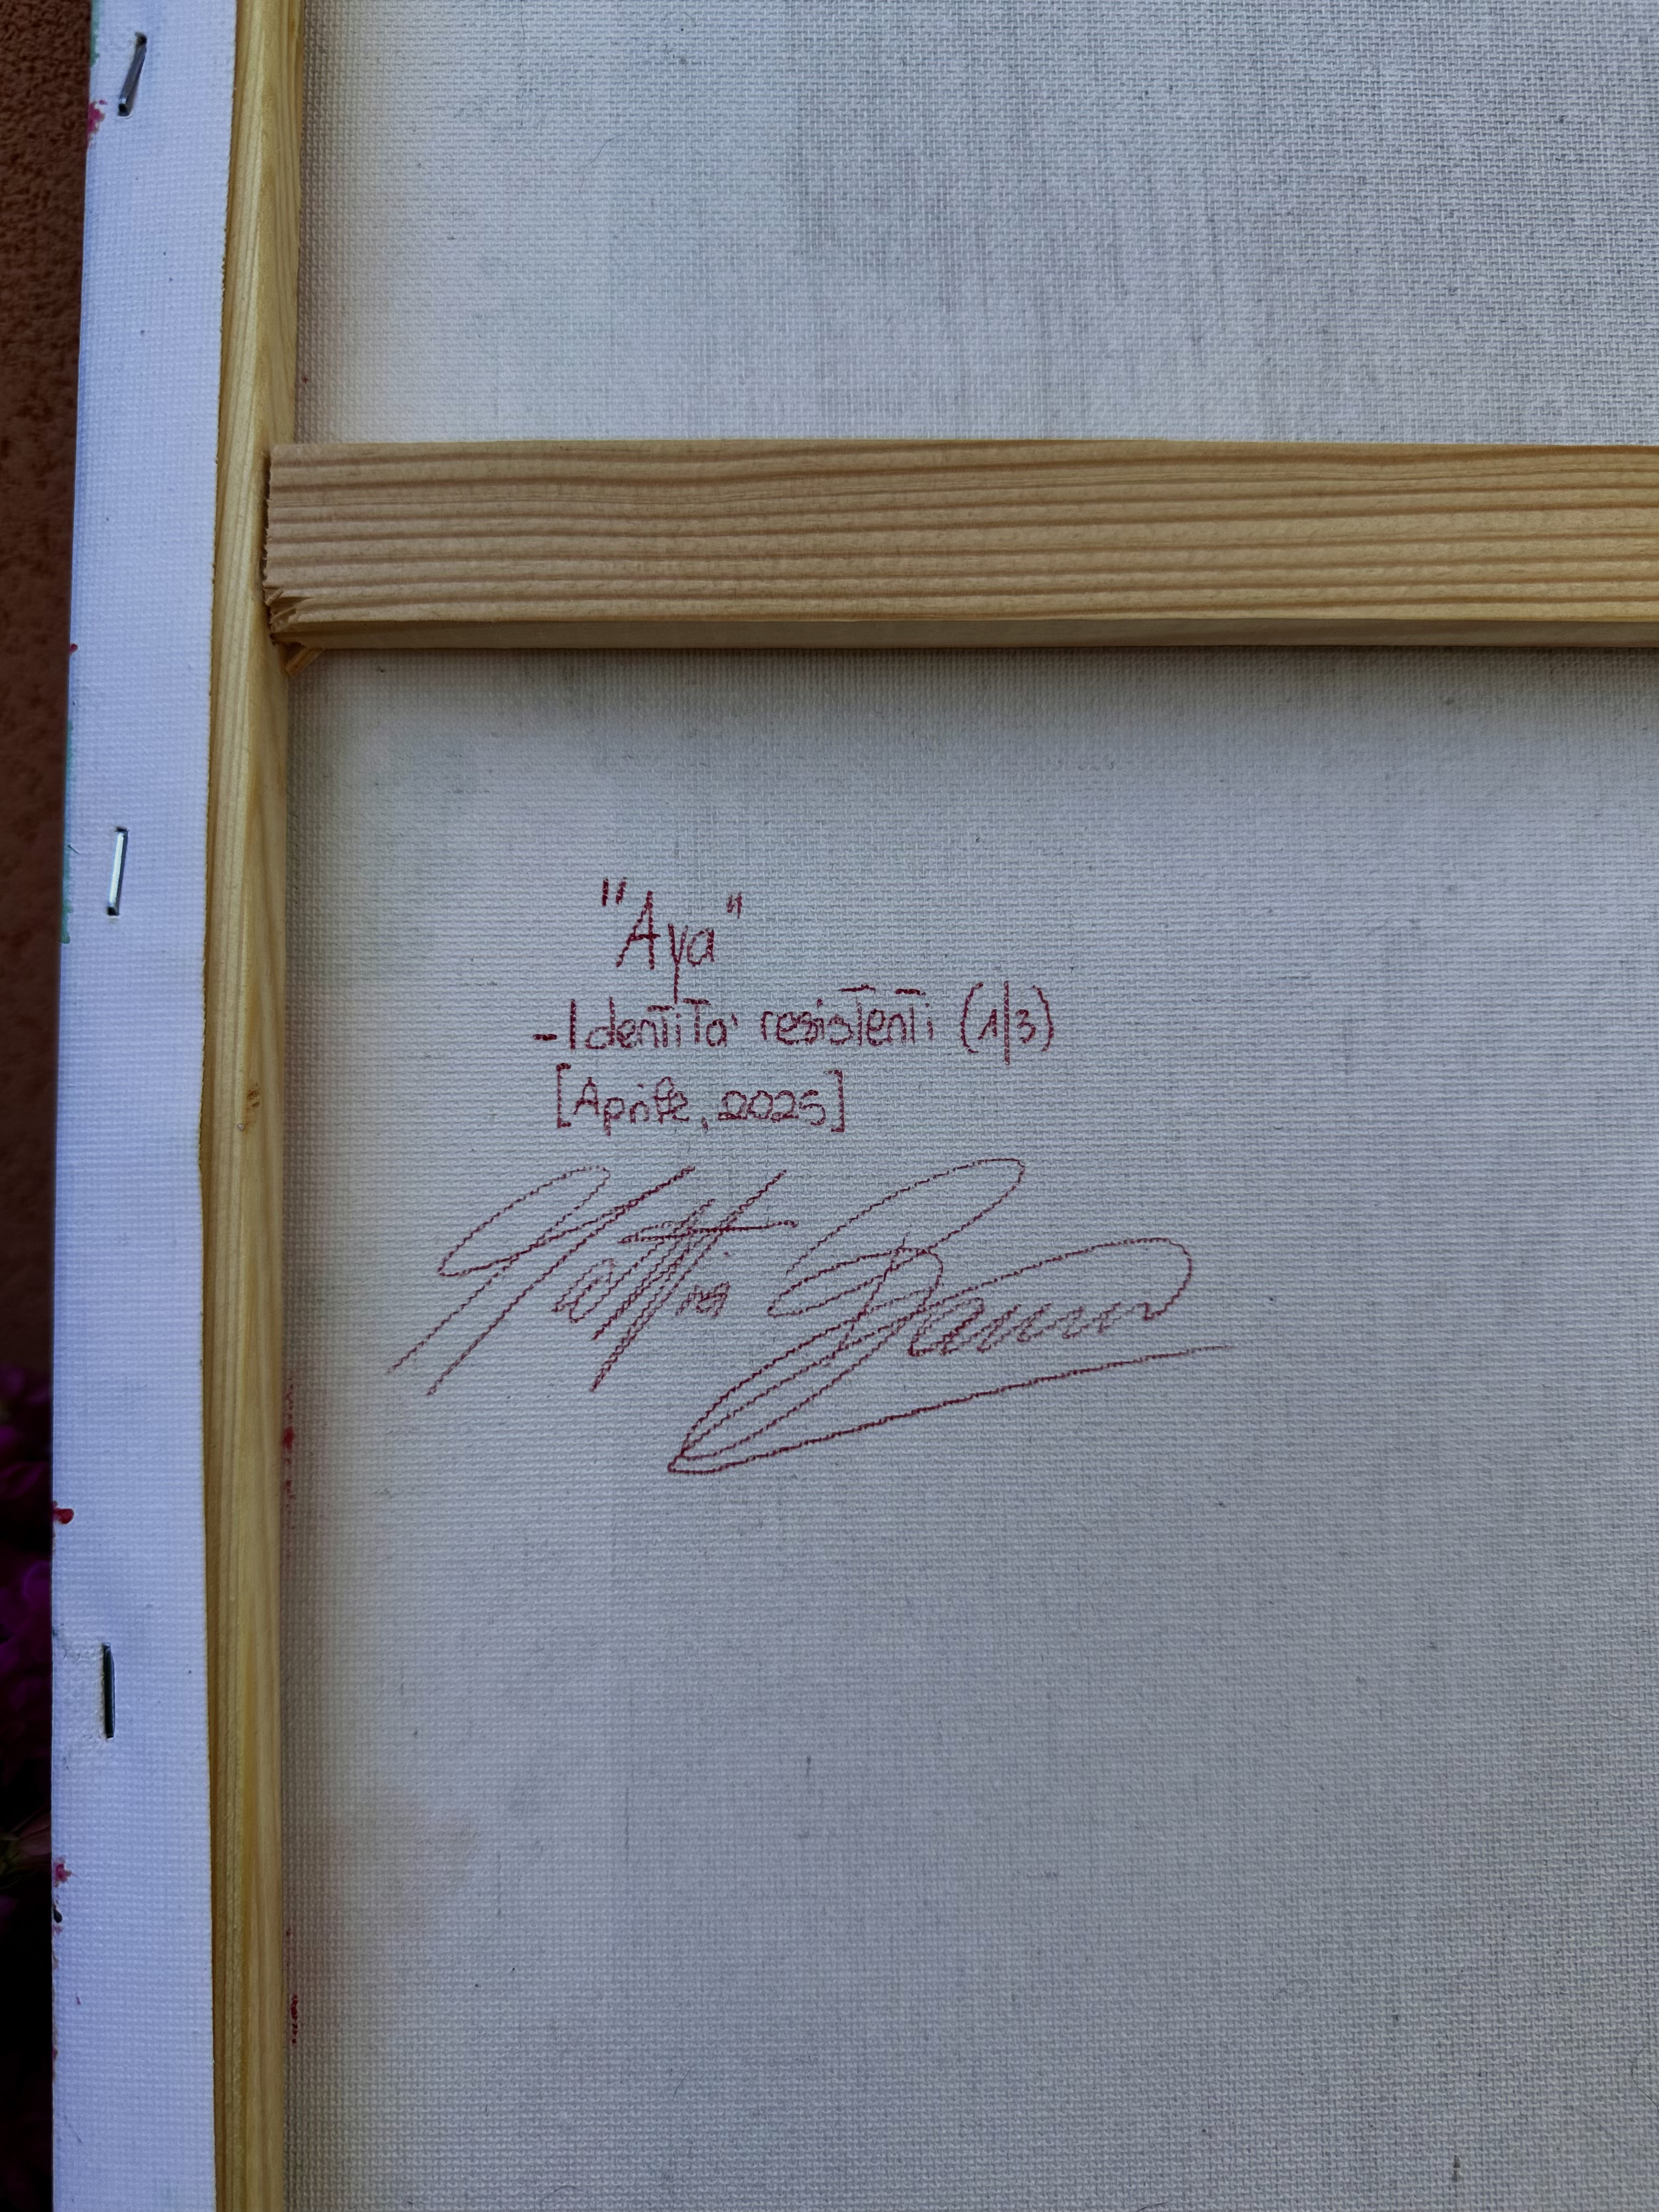 "Aya"
-Identità resistenti (1/3)
[Aprile, 2025]